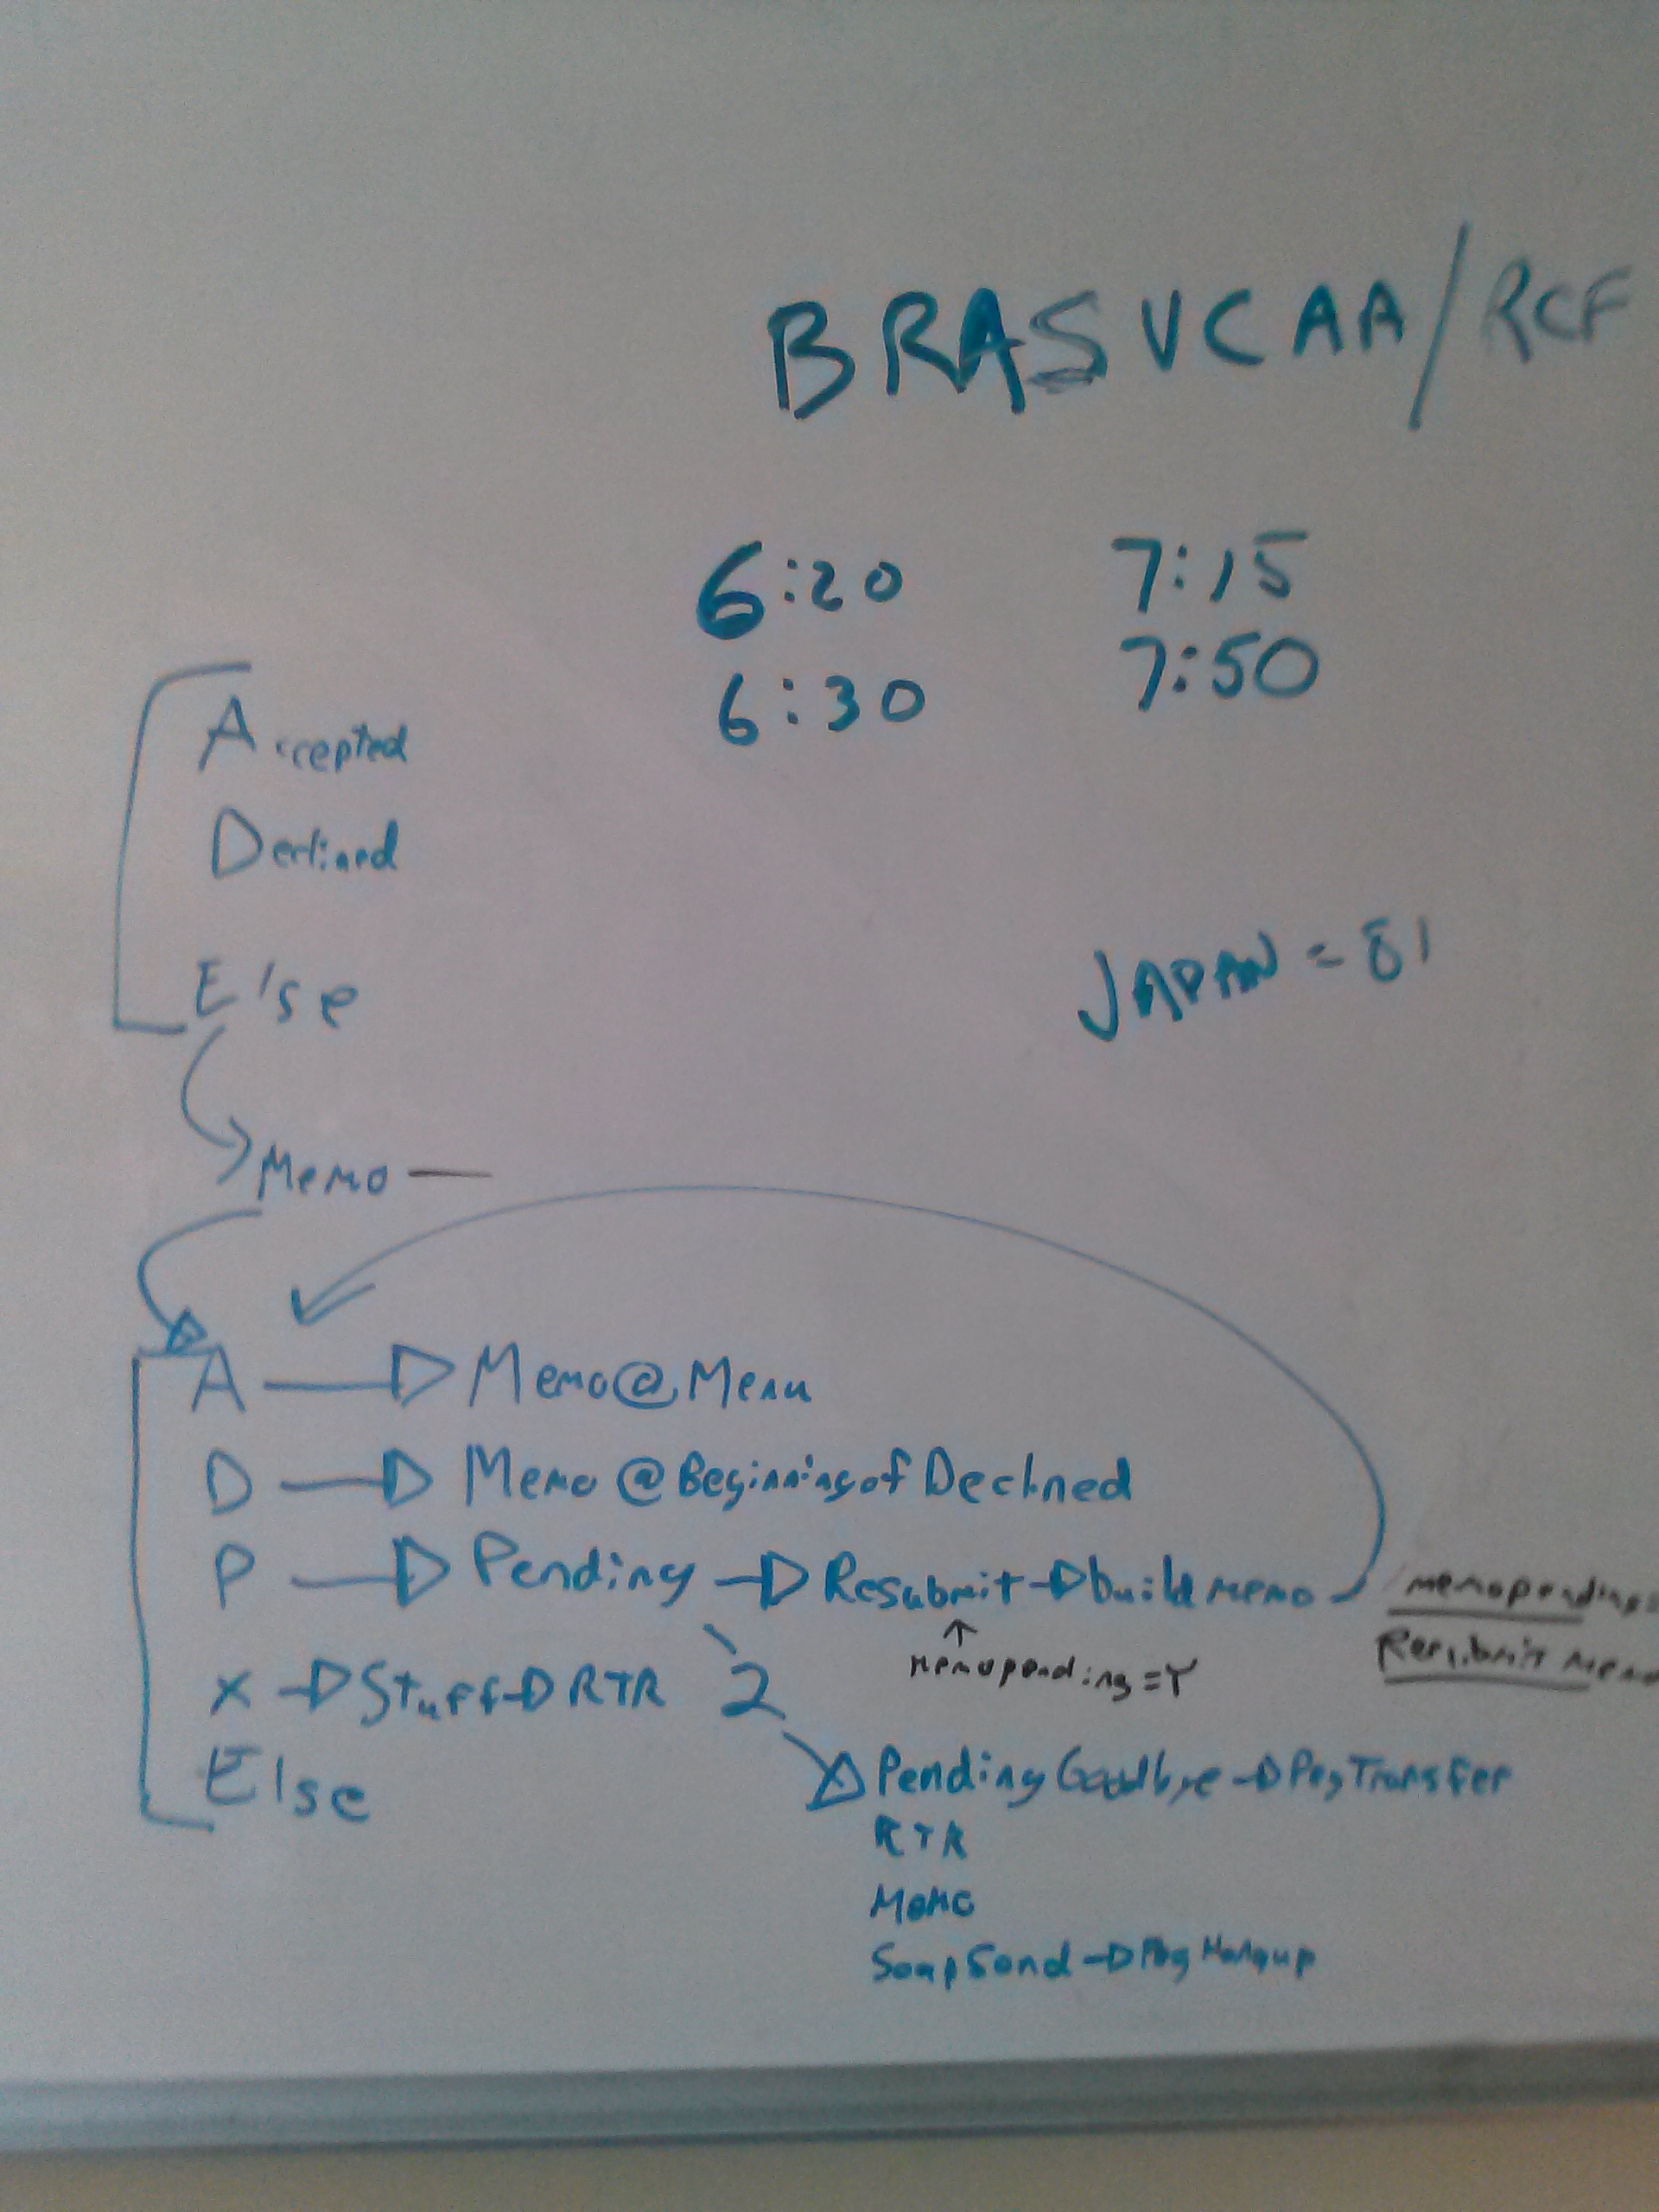 BRASVCAA/RCF
6:20 7:15
6:30 7:50
Accepted
Declined
Else
JAPAN = 81
Memo —
A → Memo@Menu
D → Memo @BeginningofDeclined
P → Pending → Resubmit → build memo
memopending=Y
memopending=
Resubmit memo
X → Stuff → RTR 2
Else
Pending Goodbye → Transfer
RTR
Memo
SoapSend → Hangup